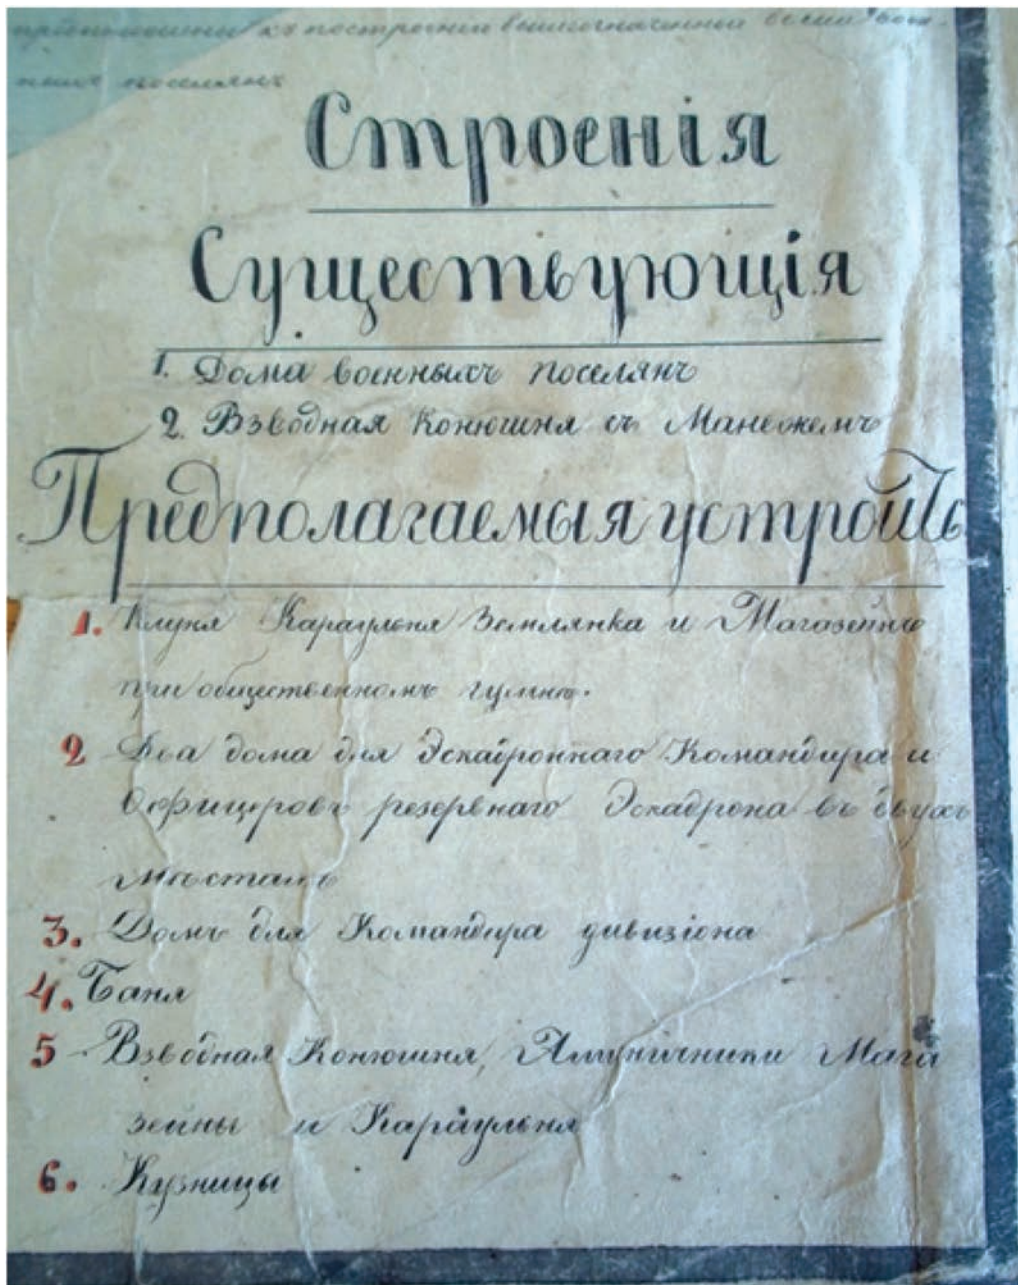 къ построенiи вышеозначенныхъ
поселянъ
Строенiя
Существующiя
1. Дома военныхъ поселянъ
2. Взводная Конюшня съ Манежемъ
Предполагаемыя устроить
1. Клуня Караульня Землянка и Магазейнъ
при общественномъ гумнѣ.
2 Два дома для Эскадроннаго Командира и
Офицеровъ резервнаго Эскадрона въ двухъ
мѣстахъ
3. Домъ для Командира дивизiона
4. Баня
5 Взводная Конюшня, Амуничники Мага
зейны и Караульня
6. Кузницы